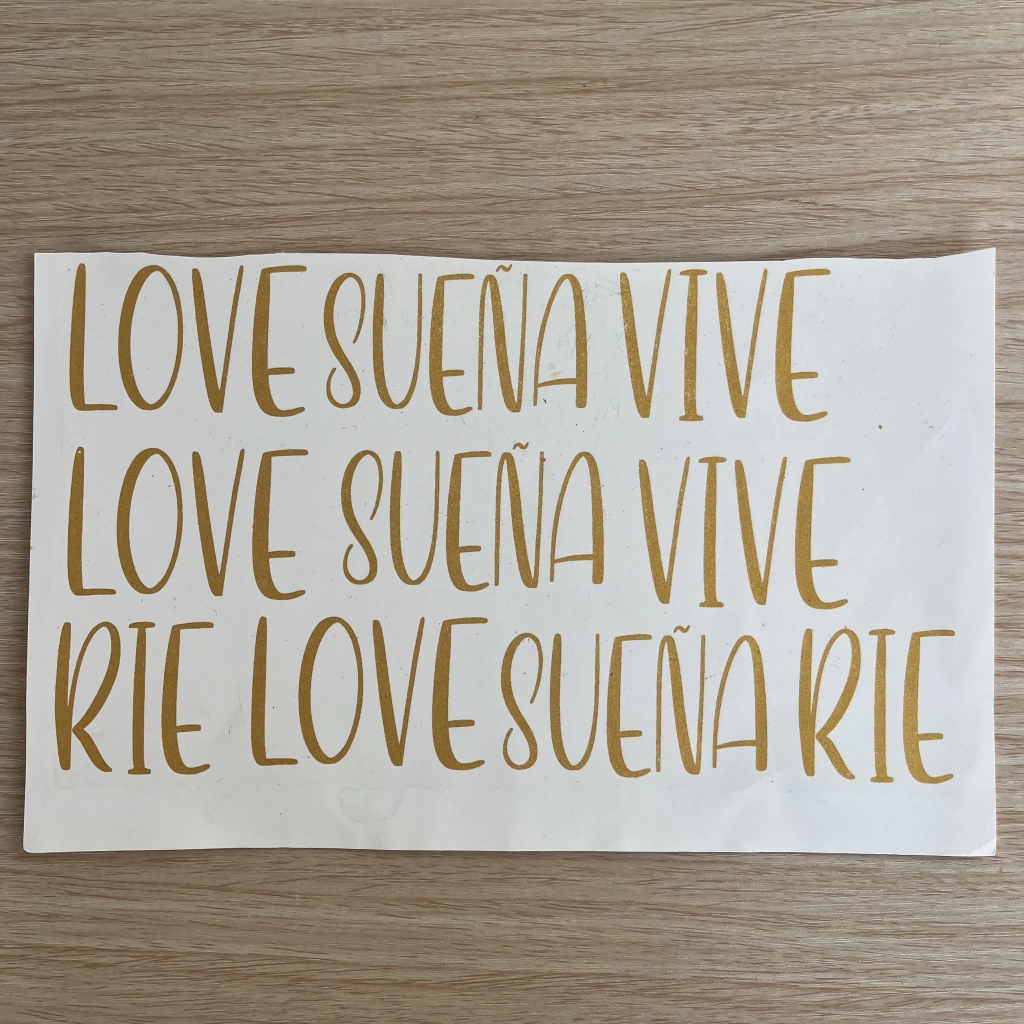 LOVE SUEÑA VIVE
LOVE SUEÑA VIVE
RIE LOVE SUEÑA RIE